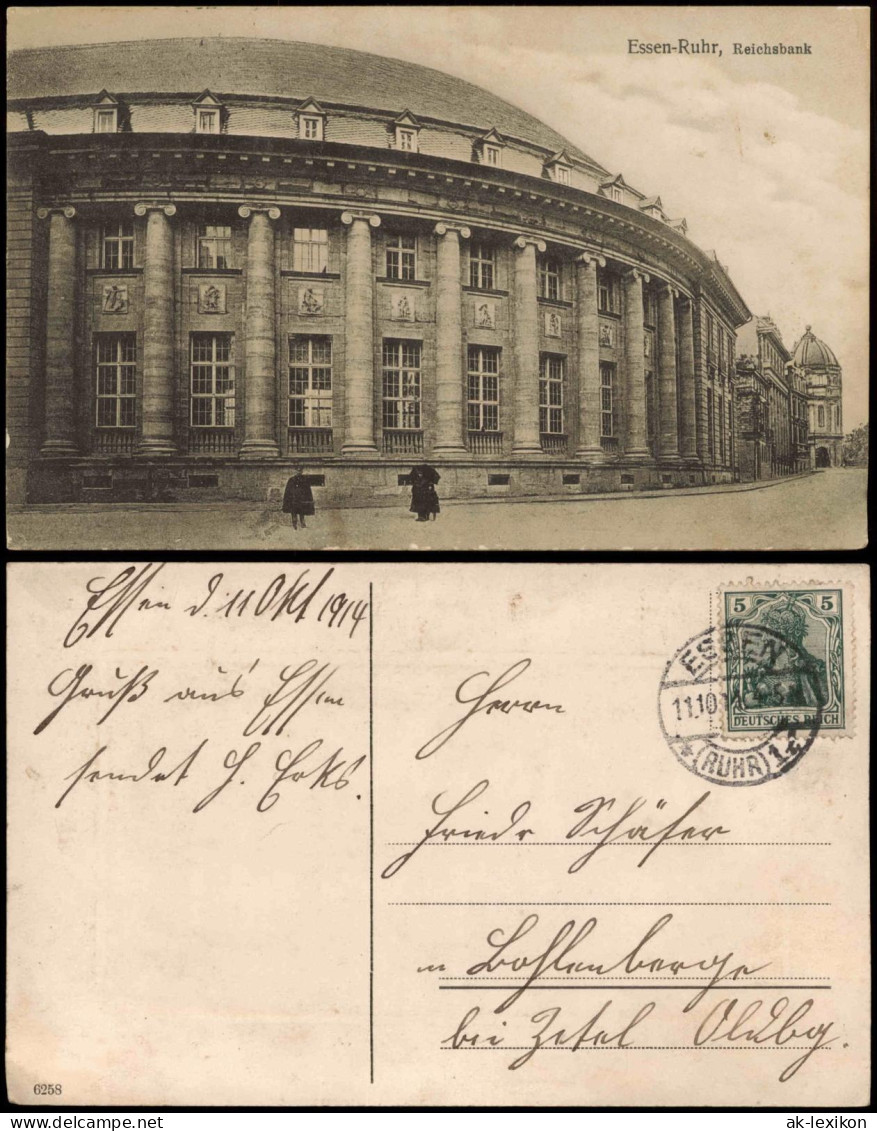 Essen-Ruhr, Reichsbank
Essen d. 11 Okt 1914
Gruß aus Essen
sendet H. Erks.
5 5
DEUTSCHES REICH
ESSEN
11.10.14
* (RUHR) 1 *
Herrn
Friedr Schäfer
in Bohlenberge
bei Zetel Oldbg.
6258
www.delcampe.net
ak-lexikon